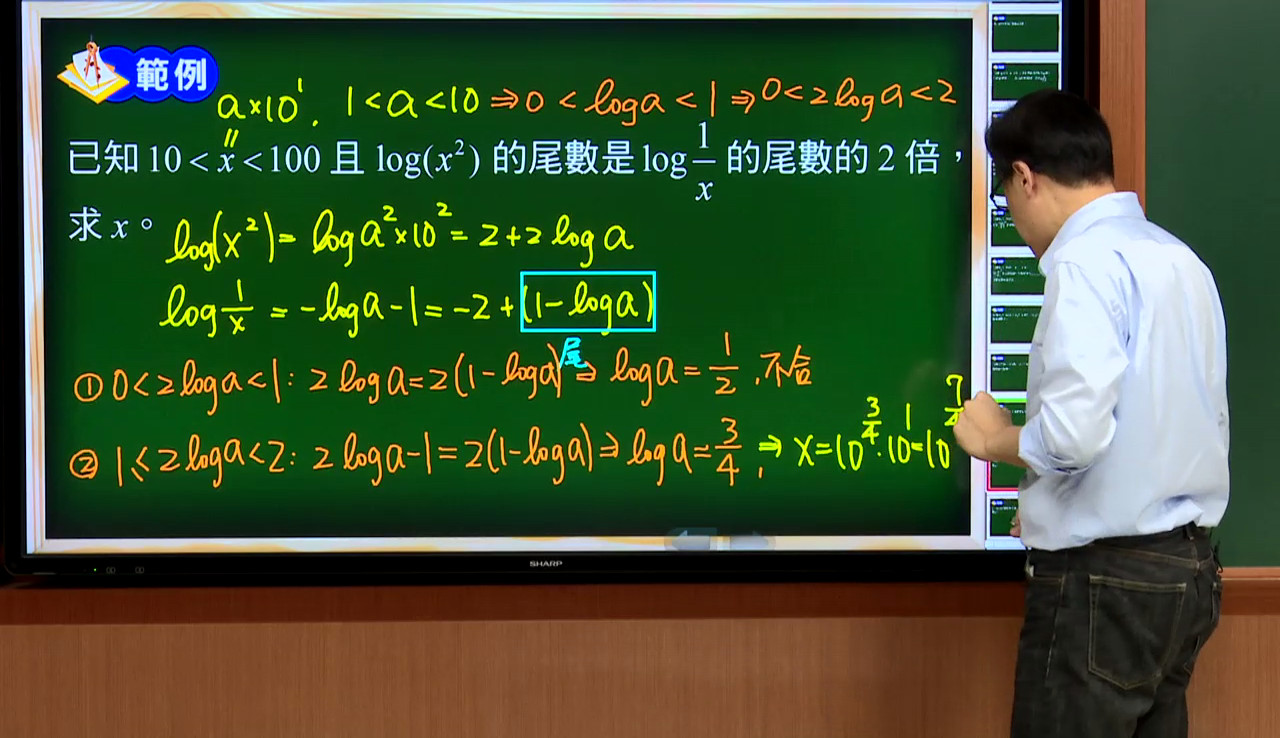 範例
a×10¹. 1<a<10 ⇒ 0<log a<1 ⇒ 0<2log a<2
〃
已知 10<x<100 且 log(x²) 的尾數是 log 1/x 的尾數的 2 倍，
求 x。
log(x²)=log a²×10²=2+2log a
log 1/x = -log a-1=-2+(1-log a)
尾
① 0<2log a<1: 2log a=2(1-log a) ⇒ log a=1/2, 不合
② 1≤2log a<2: 2log a-1=2(1-log a) ⇒ log a=3/4, ⇒ x=10^(3/4)·10¹=10^(7/4)
SHARP